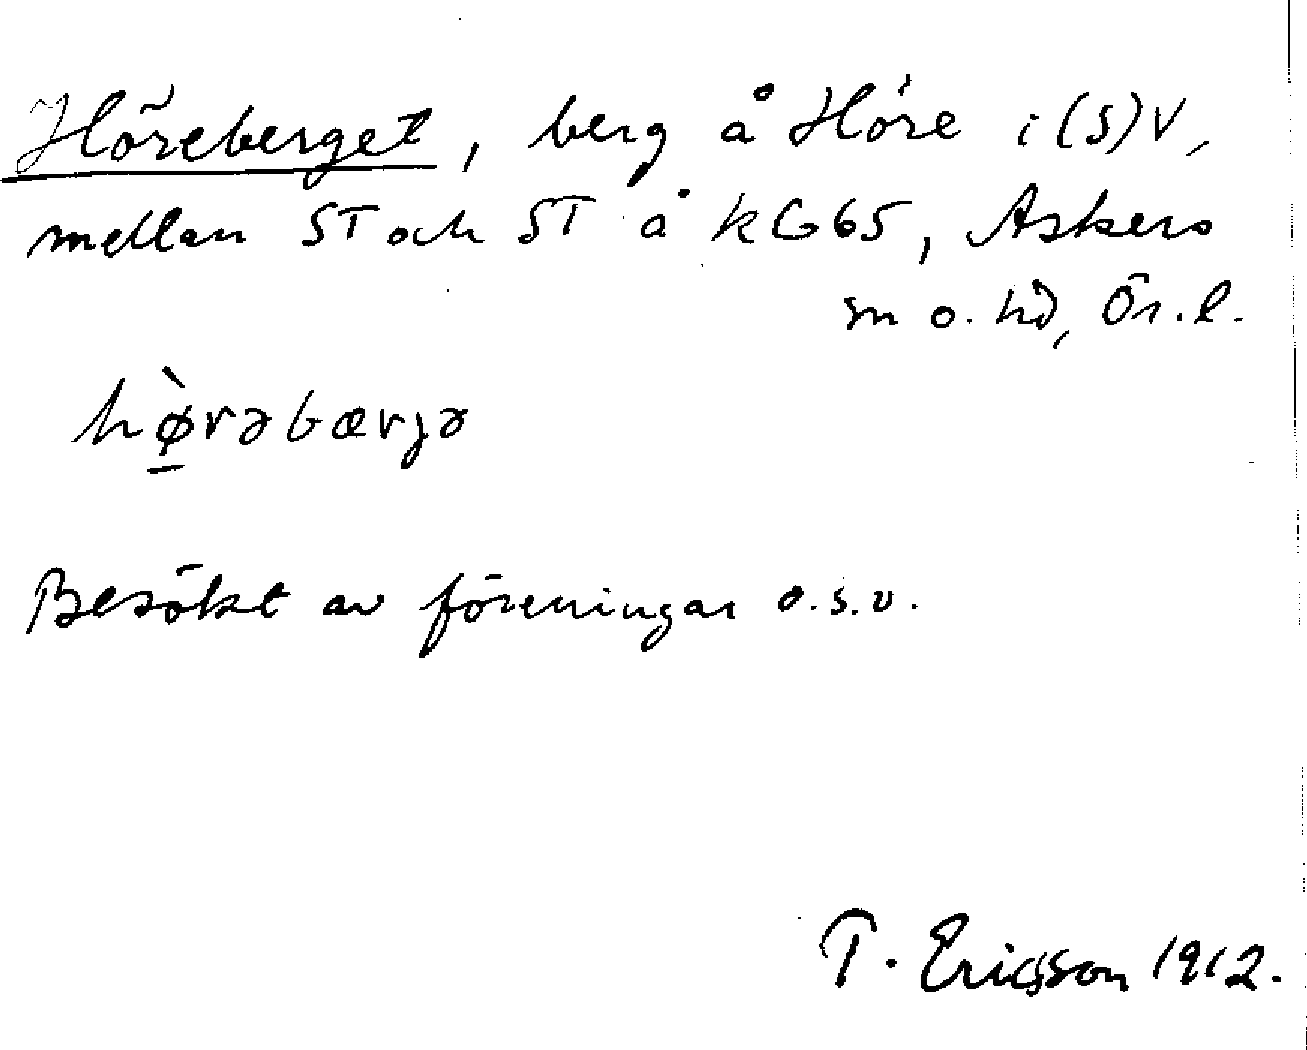 Höreberget, berg å Höre i (S)V,
mellan ST och ST å kG65, Askers
sn o. hd, Ör. l.
hø̀rəbærjə
Besökt av föreningar o.s.v.
T. Ericsson 1912.